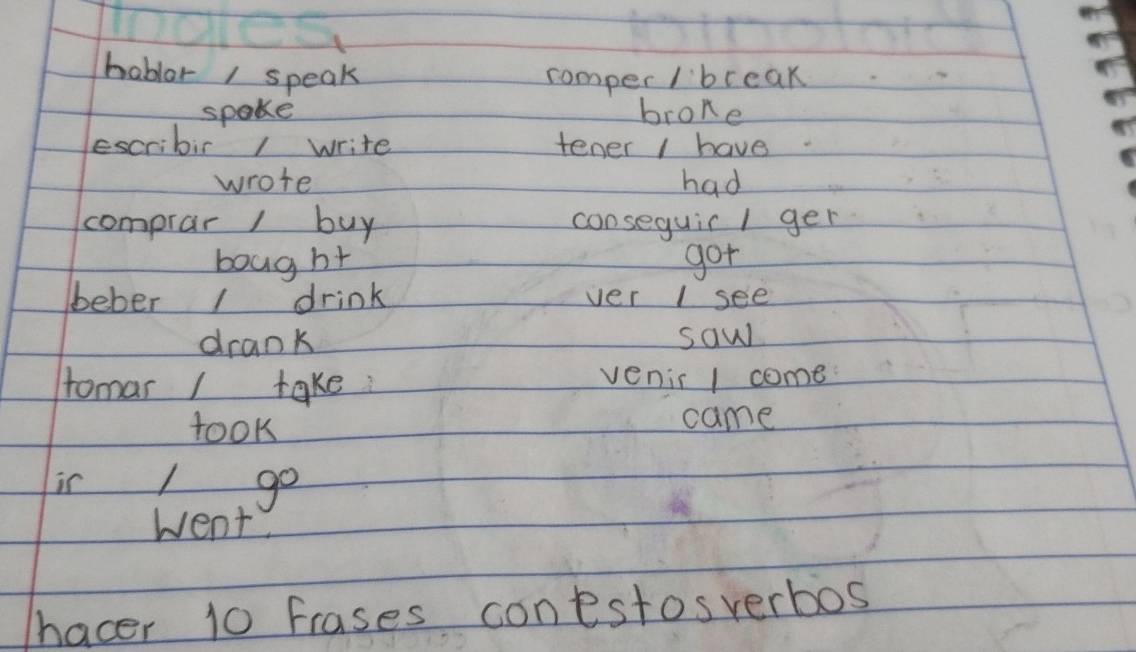 Ingles
hablar / speak
spoke
escribir / write
wrote
comprar / buy
bought
beber / drink
drank
tomar / take
took
ir / go
went.
romper / break
broke
tener / have
had
conseguir / ger
got
ver / see
saw
venir / come
came
hacer 10 frases con estos verbos